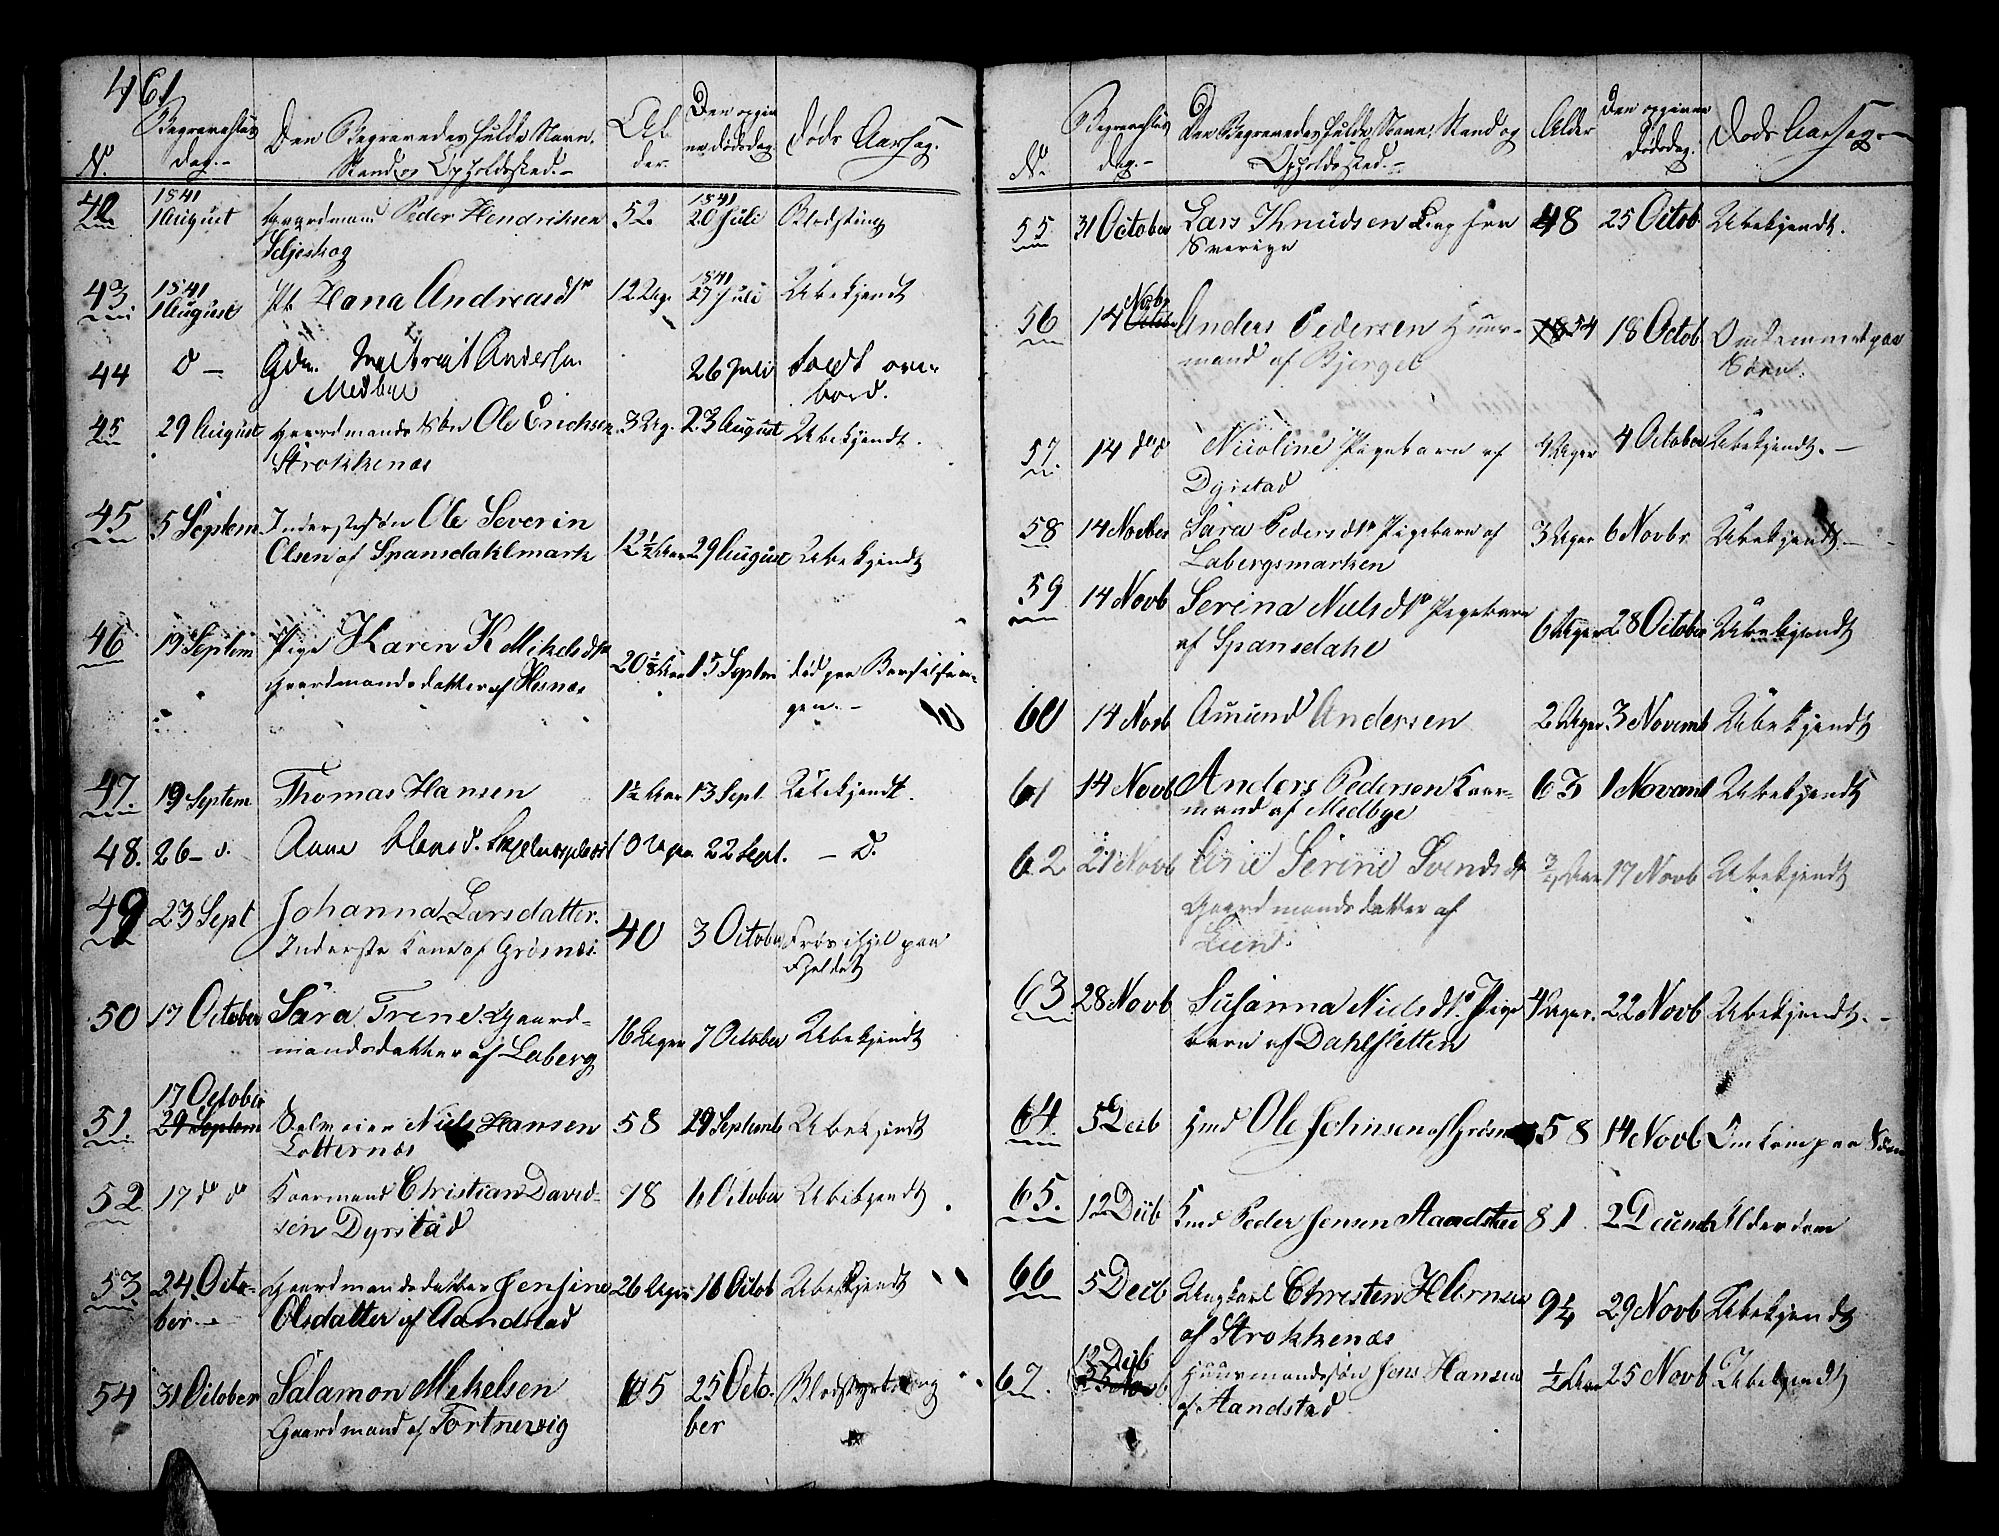 461
N.
Begravelses
Dag.-
Den Begravedes fulde Navn,
Stand og Opholdssted.-
Al
der.
Den opgiv
ne dødsdag
Døds Aarsag.
42
1841
1 August
Gaardmand Peder Hendriksen
Seljeskog
52
1841
20 Juli
Blodsting
43
1841
1 August
Pb Hana Andreasdtr
12 Uger
1841
27 Juli
Ubekjendt
44
d -
Andersen
Medbye
26 Juli
faldt over
bord.
45
29 August
Gaardmands Søn Ole Erichsen
Strokkenæs
3 Ug.
23 August
Ubekjendt.
45
5 Septem
Inderstesøn Ole Severin
Olsen af Spansdahlmark
12 1/2 Aar
29 August
Ubekjendt
46
19 Septem
Pige Karen K Mikelsdtr
Gaardmandsdatter af Hesnæs
20 1/2 Aar
15 Septem
død paa Barselsen-
gen.-
47.
19 Septem
Thomas Hansen
1 1/2 Aar
13 Sept
Ubekjendt.
48.
26 - d.
Anne Olensd.
10 Uger
22 Sept.
- d.
49
23 Sept
Johanna Larsdatter.
Inderste Kone af Grosnæs.
40
3 Octobe
Frøs ihjel paa
Fjeldet
50
17 October
Sara Trene. Gaard-
mandsdatter af Laberg
16 Uger
7 October
Ubekjendt
51.
17 October
29 Septem
Selveier Niels Hansen
Lotternæs
58
29 Septemb
Ubekjendt
52
17 do d
Kaarmand Christian David-
sen Dyrstad
78
6 October
Ubekjendt
53.
24 Octo-
ber.-
Gaardmandsdatter Jensine
Olsdatter af Aandstad
26 Uger
16 Octob
Ubekjendt
54
31 October
Salamon Mekelsen
Gaardmand af Fortnevig
65
25 Octo-
ber
Blodstyrtning
N.
Begravelses
dag.-
Den Begravedes fulde Navn, Stand og
Opholdssted.-
Alder
Den opgivne
Dødsdag.
Døds Aarsag.-
55
31 October
Lars Knudsen Lap fra
Sverige
48
25 Octob
Ubekjendt.
56
14 Novbr
Anders Pedersen Huus-
mand af Bjerget
54
18 Octob
Omkommet paa
Søen.
57
14 do d
Nicoline Pigebarn af
Dyrstad
4 Uger
4 October
Ubekjendt.-
58
14 Novber
Sara Pedersdtr Pigebarn af
Labergsmarken
3 Uger
6 Novbr
Ubekjendt.-
59
14 Novb
Serina Nielsdtr Pigebarn
af Spansdahl
6 Uger
28 October
Ubekjendt
60
14 Novb
Amund Andersen
2 Uger
3 Novemb
Ubekjendt
61
14 Novb
Anders Pedersen Kaar-
mand af Medbye
63
1 Novemb
Ubekjendt
62
21 Novb
Serine Svendsdt
Gaardmandsdatter af
Lien.
17 Novb
Ubekjendt
63
28 Novb
Susanna Nielsdtr. Pige
barn af Dahlsletten
4 Uger.
22 Novb
Ubekjendt.-
64.
5 Decb
Hmd Ole Johnsen af Grosnæs
58
14 Novb
Omkom paa Søen
65.
12 Decb
Kmd Peder Jensen Aandstad
81
2 Decemb
Alderdom
66
5 Decb
Ungkarl Christen
af Strokkenæs
9 1/4
29 Novb
Ubekjendt
67.
12 Decb
Huusmandssøn Jens Hansen
af Aandstad
1/2 Aar
25 Novb
Ubekjendt